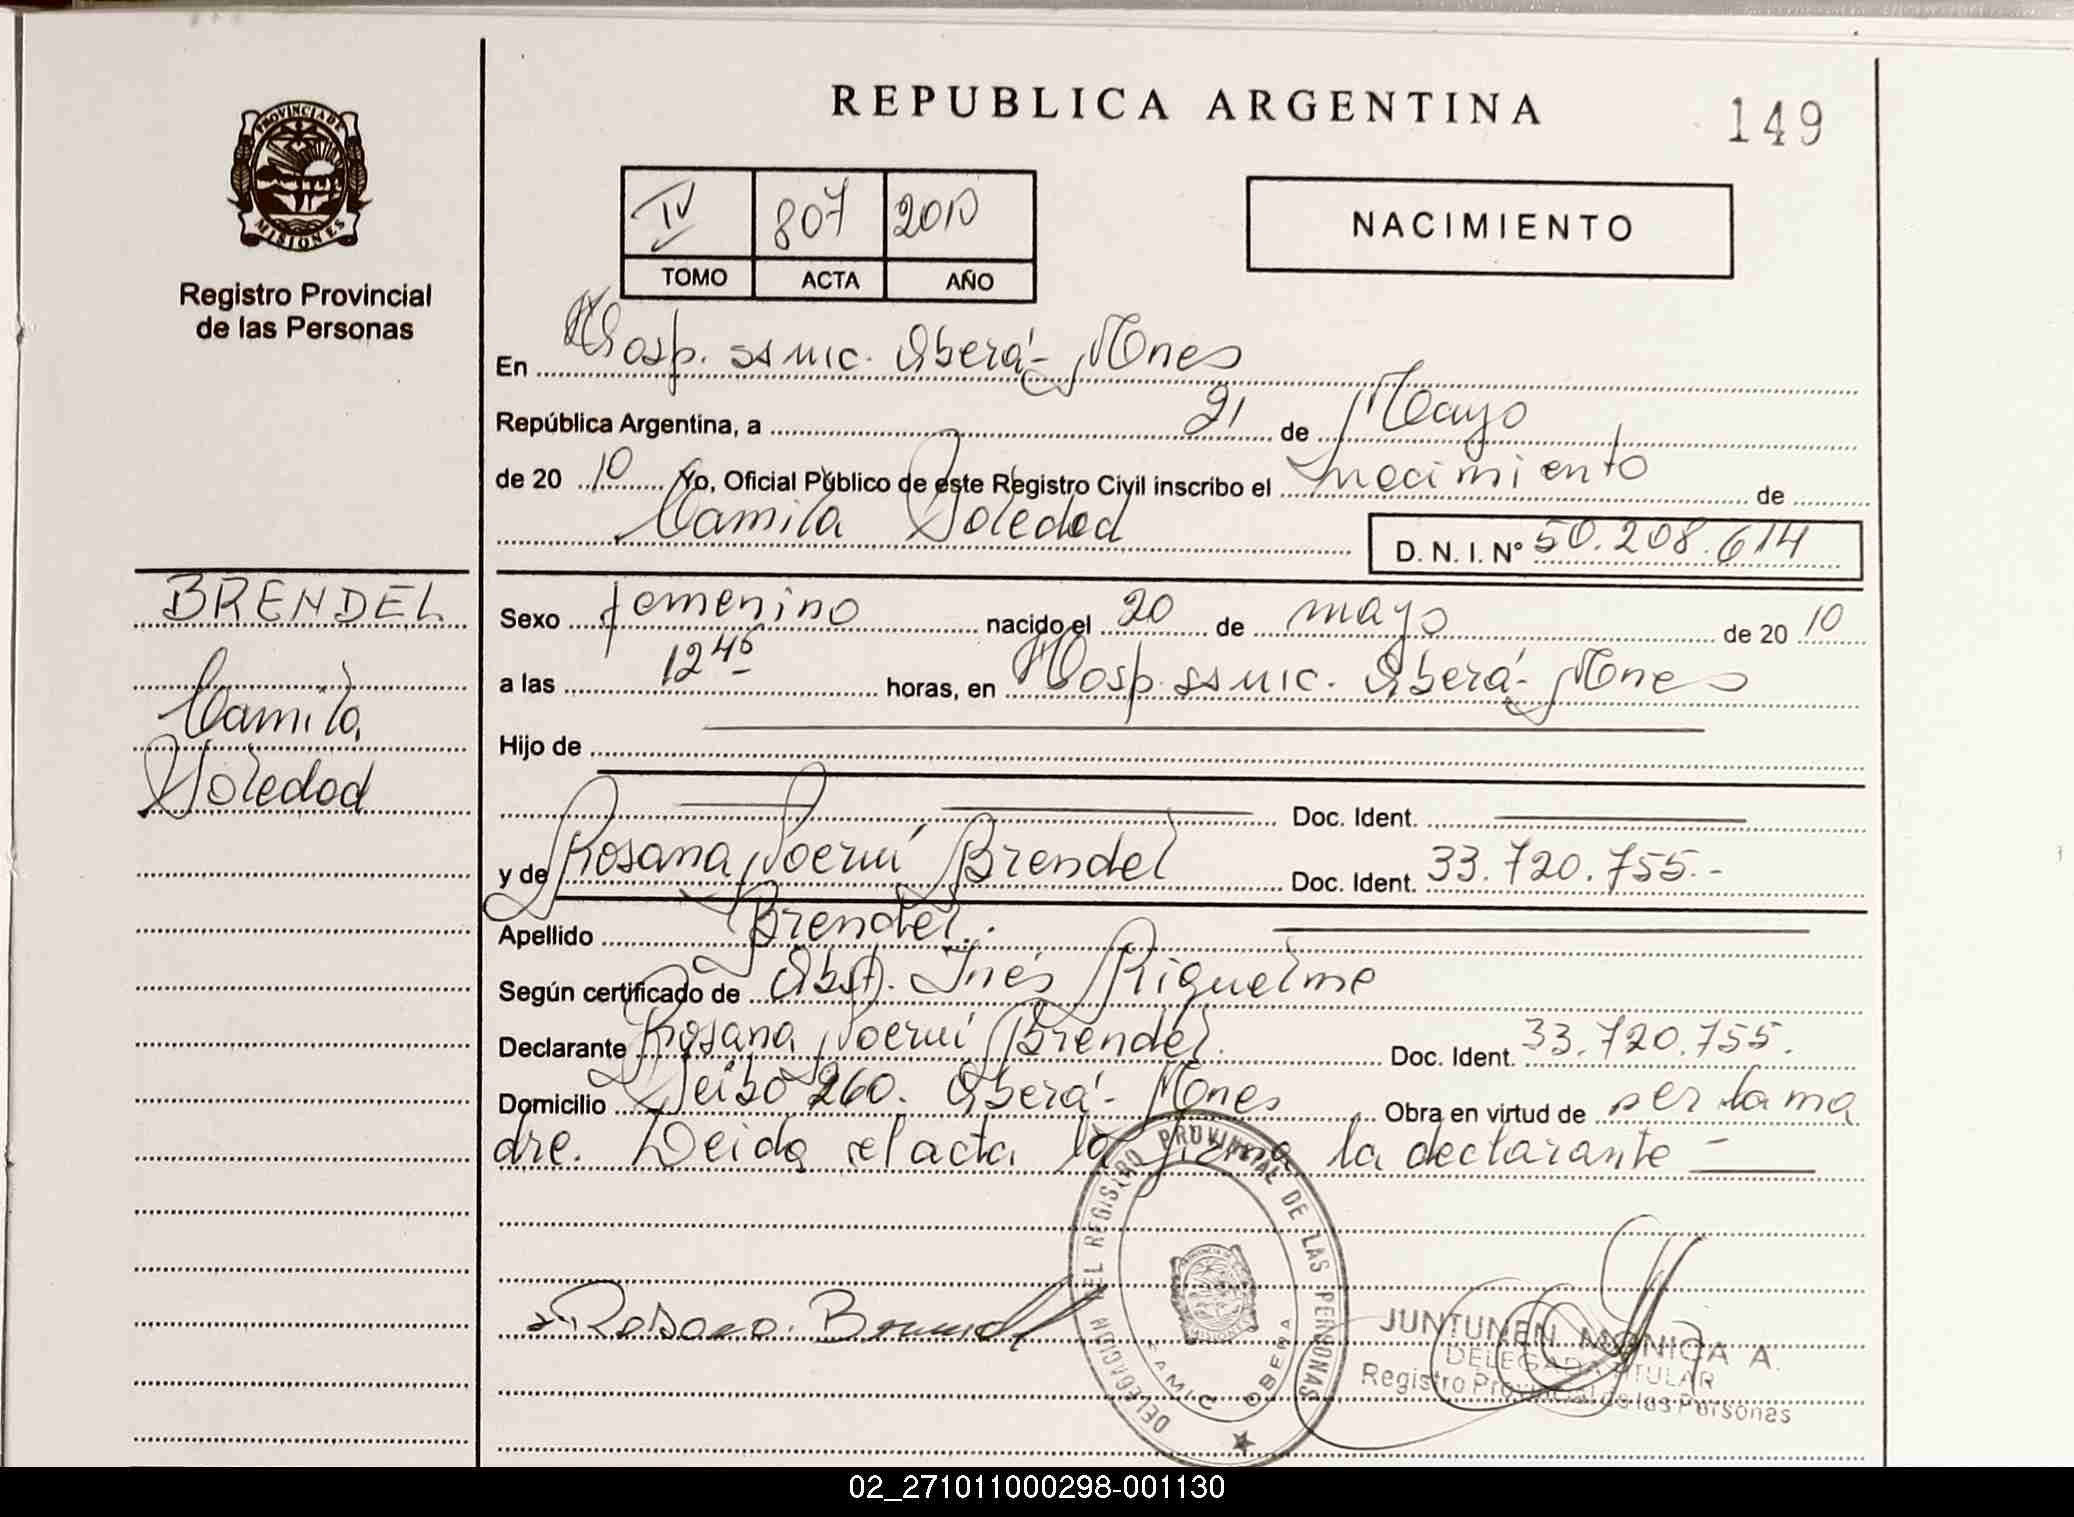 REPUBLICA ARGENTINA
149
PROVINCIA DE
MISIONES
Registro Provincial
de las Personas
IV 807 2010
TOMO ACTA AÑO
NACIMIENTO
En Hosp. SAMIC. Oberá- Mnes
República Argentina, a 21 de Mayo
de 20 10 Yo, Oficial Público de este Registro Civil inscribo el nacimiento de
Camila Soledad D. N. I. Nº 50.208.614
BRENDEL
Camila
Soledad
Sexo femenino nacido el 20 de mayo de 20 10
a las 12 45 horas, en Hosp. SAMIC. Oberá- Mnes
Hijo de
Doc. Ident.
y de Rosana Noemí Brendel Doc. Ident. 33.720.755.-
Apellido Brendel.
Según certificado de Obst. Inés Riquelme
Declarante Rosana Noemí Brendel. Doc. Ident. 33.720.755.
Domicilio Seibo 260. Oberá- Mnes Obra en virtud de ser la ma
dre. Leida el acta la firma la declarante -
DELEGACION DEL REGISTRO PROVINCIAL DE LAS PERSONAS
SAMIC OBERA
Rosana Brendel
JUNTUNEN MONICA A.
DELEGADA TITULAR
Registro Provincial de las Personas
02_271011000298-001130